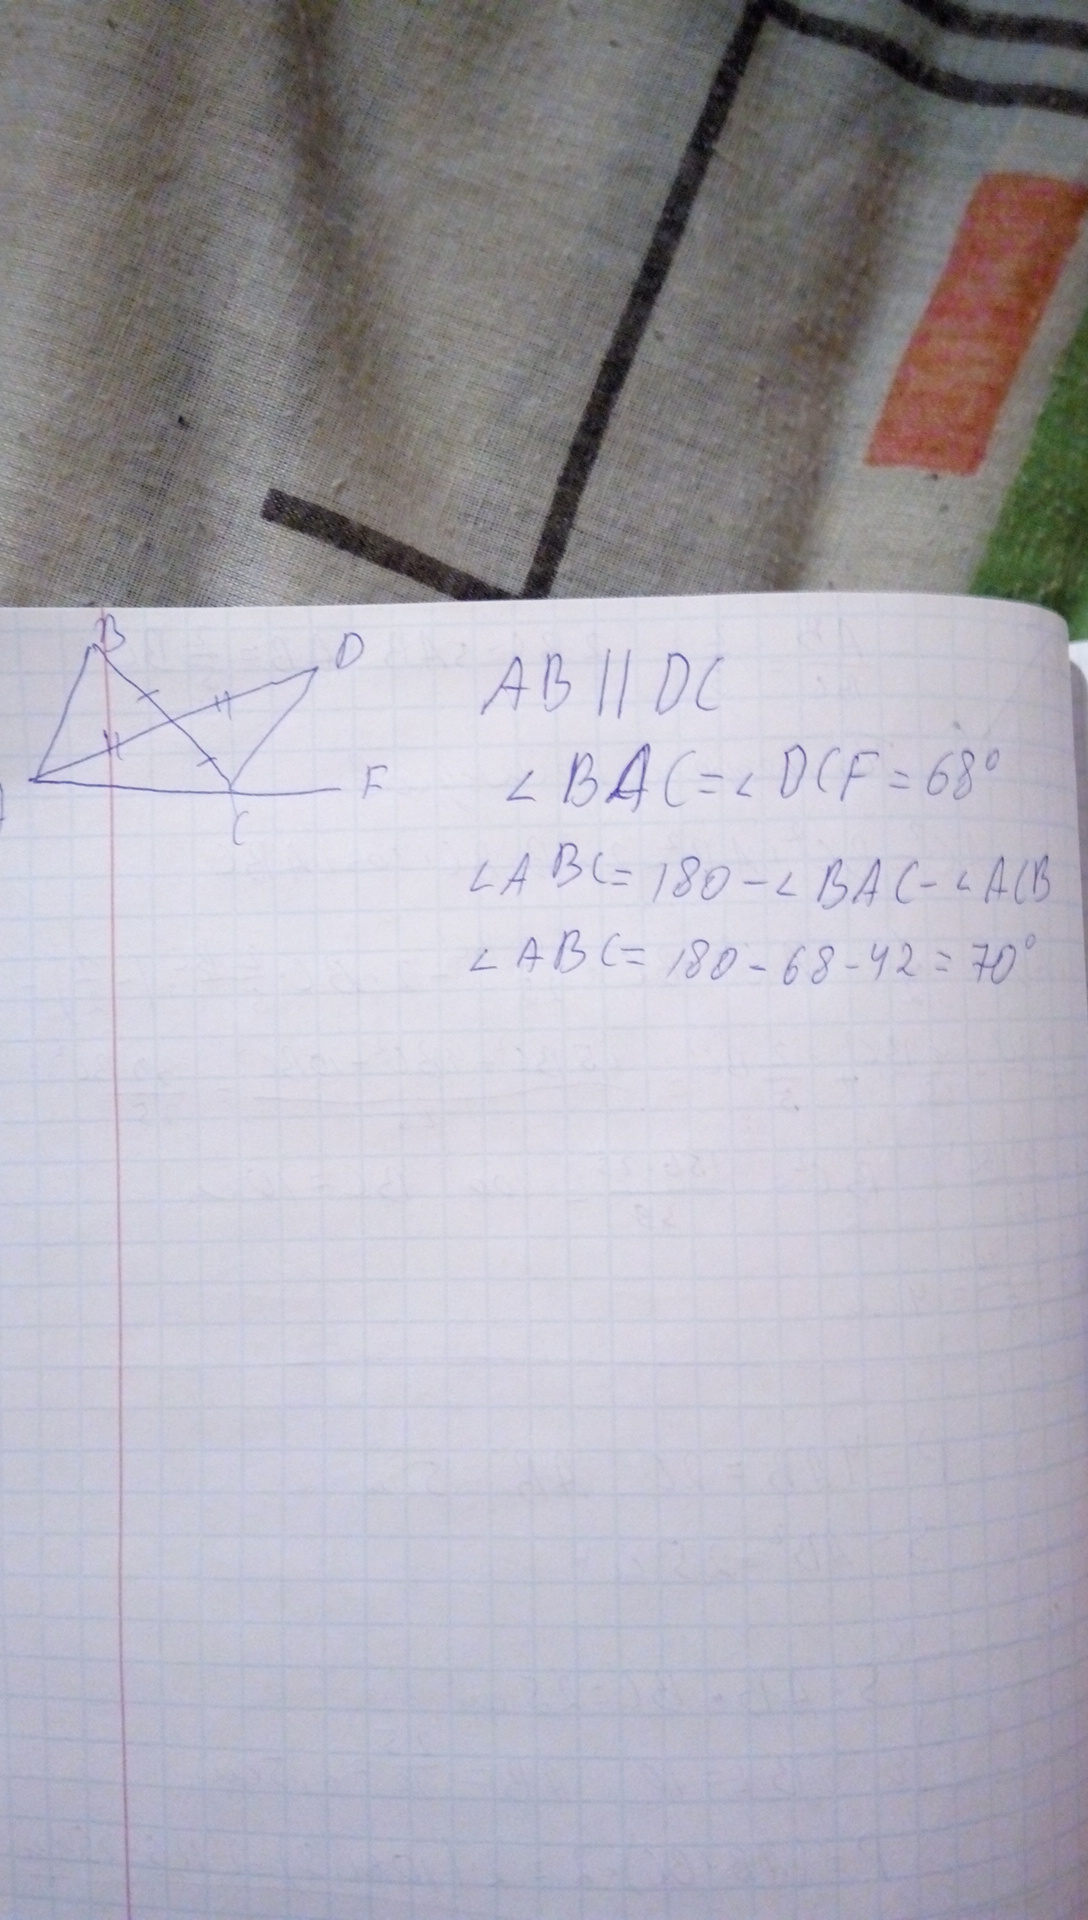 B
D
F
C
AB || DC
∠BAC = ∠DCF = 68°
∠ABC = 180 - ∠BAC - ∠ACB
∠ABC = 180 - 68 - 42 = 70°